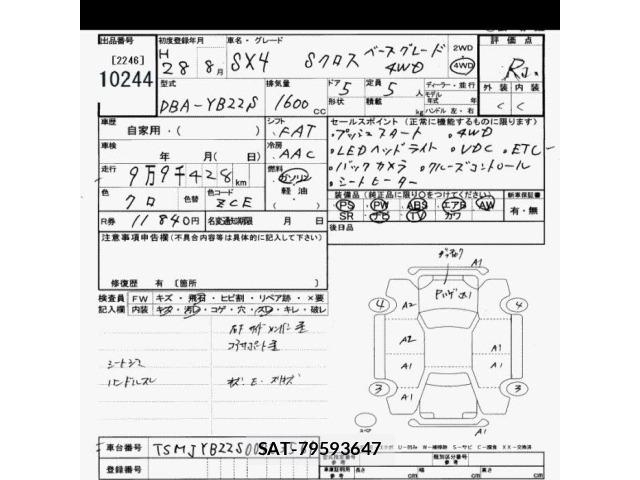 出品番号 初度登録年月 車名・グレード 評価点
[2246] H 28年 8月 SX4 Sクロス ベースグレード 4WD 2WD 4WD R
10244 型式 排気量 ドア 5 定員 5人 ディーラー・並行 外装 内装
DBA-YB22S 1600cc 形状 積載 kg モデル 年式 年 ハンドル 左・右 C C
車歴 シフト セールスポイント (正常に機能するものに限ります)
自家用・( ) FAT ・プッシュスタート ・4WD
車検 冷房 ・LEDヘッドライト ・VDC ・ETC
年 月(日) AAC ・バックカメラ ・クルーズコントロール
走行 9万9千428km 燃料 ガソリン 軽油 ・シートヒーター
色 クロ 色コード ZCE 装備品 (純正品に限り〇をつけて下さい) 新車保証書
PS PW ABS エアB AW 有・無
R券 11840円 名変通知期限 月 日 SR ナビ TV カワ
注意事項申告欄(不具合内容等は具体的に記入して下さい) 後日品
A1
修復歴 有 [箇所 ]
検査員 FW キズ・飛石・ヒビ割・リペア跡・×要
記入欄 内装 キズ・汚レ・コゲ・穴・スレ・キレ・破レ
4 A2 4
A2 A1
シートシミ A1 A1
ハンドルスレ 3 3
A1
車台番号 TSMJYB22S00
SAT-79593647
登録番号
長さ cm 幅 cm 高さ cm